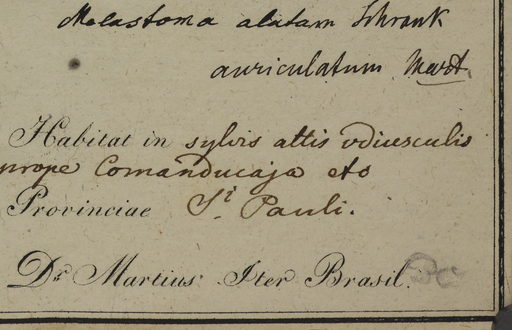 Melastoma alatam Schrank
auriculatum Mart.
Habitat in sylvis altis udiusculis
prope Comanducaja etc
Provinciae S.ti Pauli.
Dr. Martius Iter Brasil.